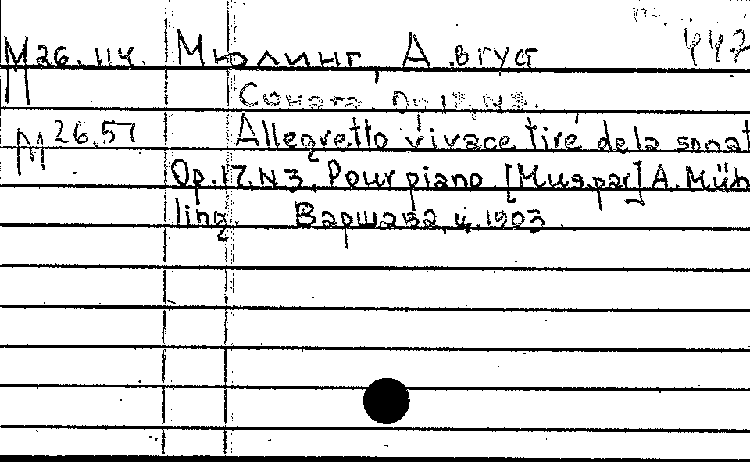 447
М 26.114. Мюлинг, Август
Соната. Op.17, N3.
М 26.57 Allegretto vivace tiré de la sonat
Op.17. N3. Pour piano [Муз.раг] A. Müh
ling. Варшава, ц. 1903